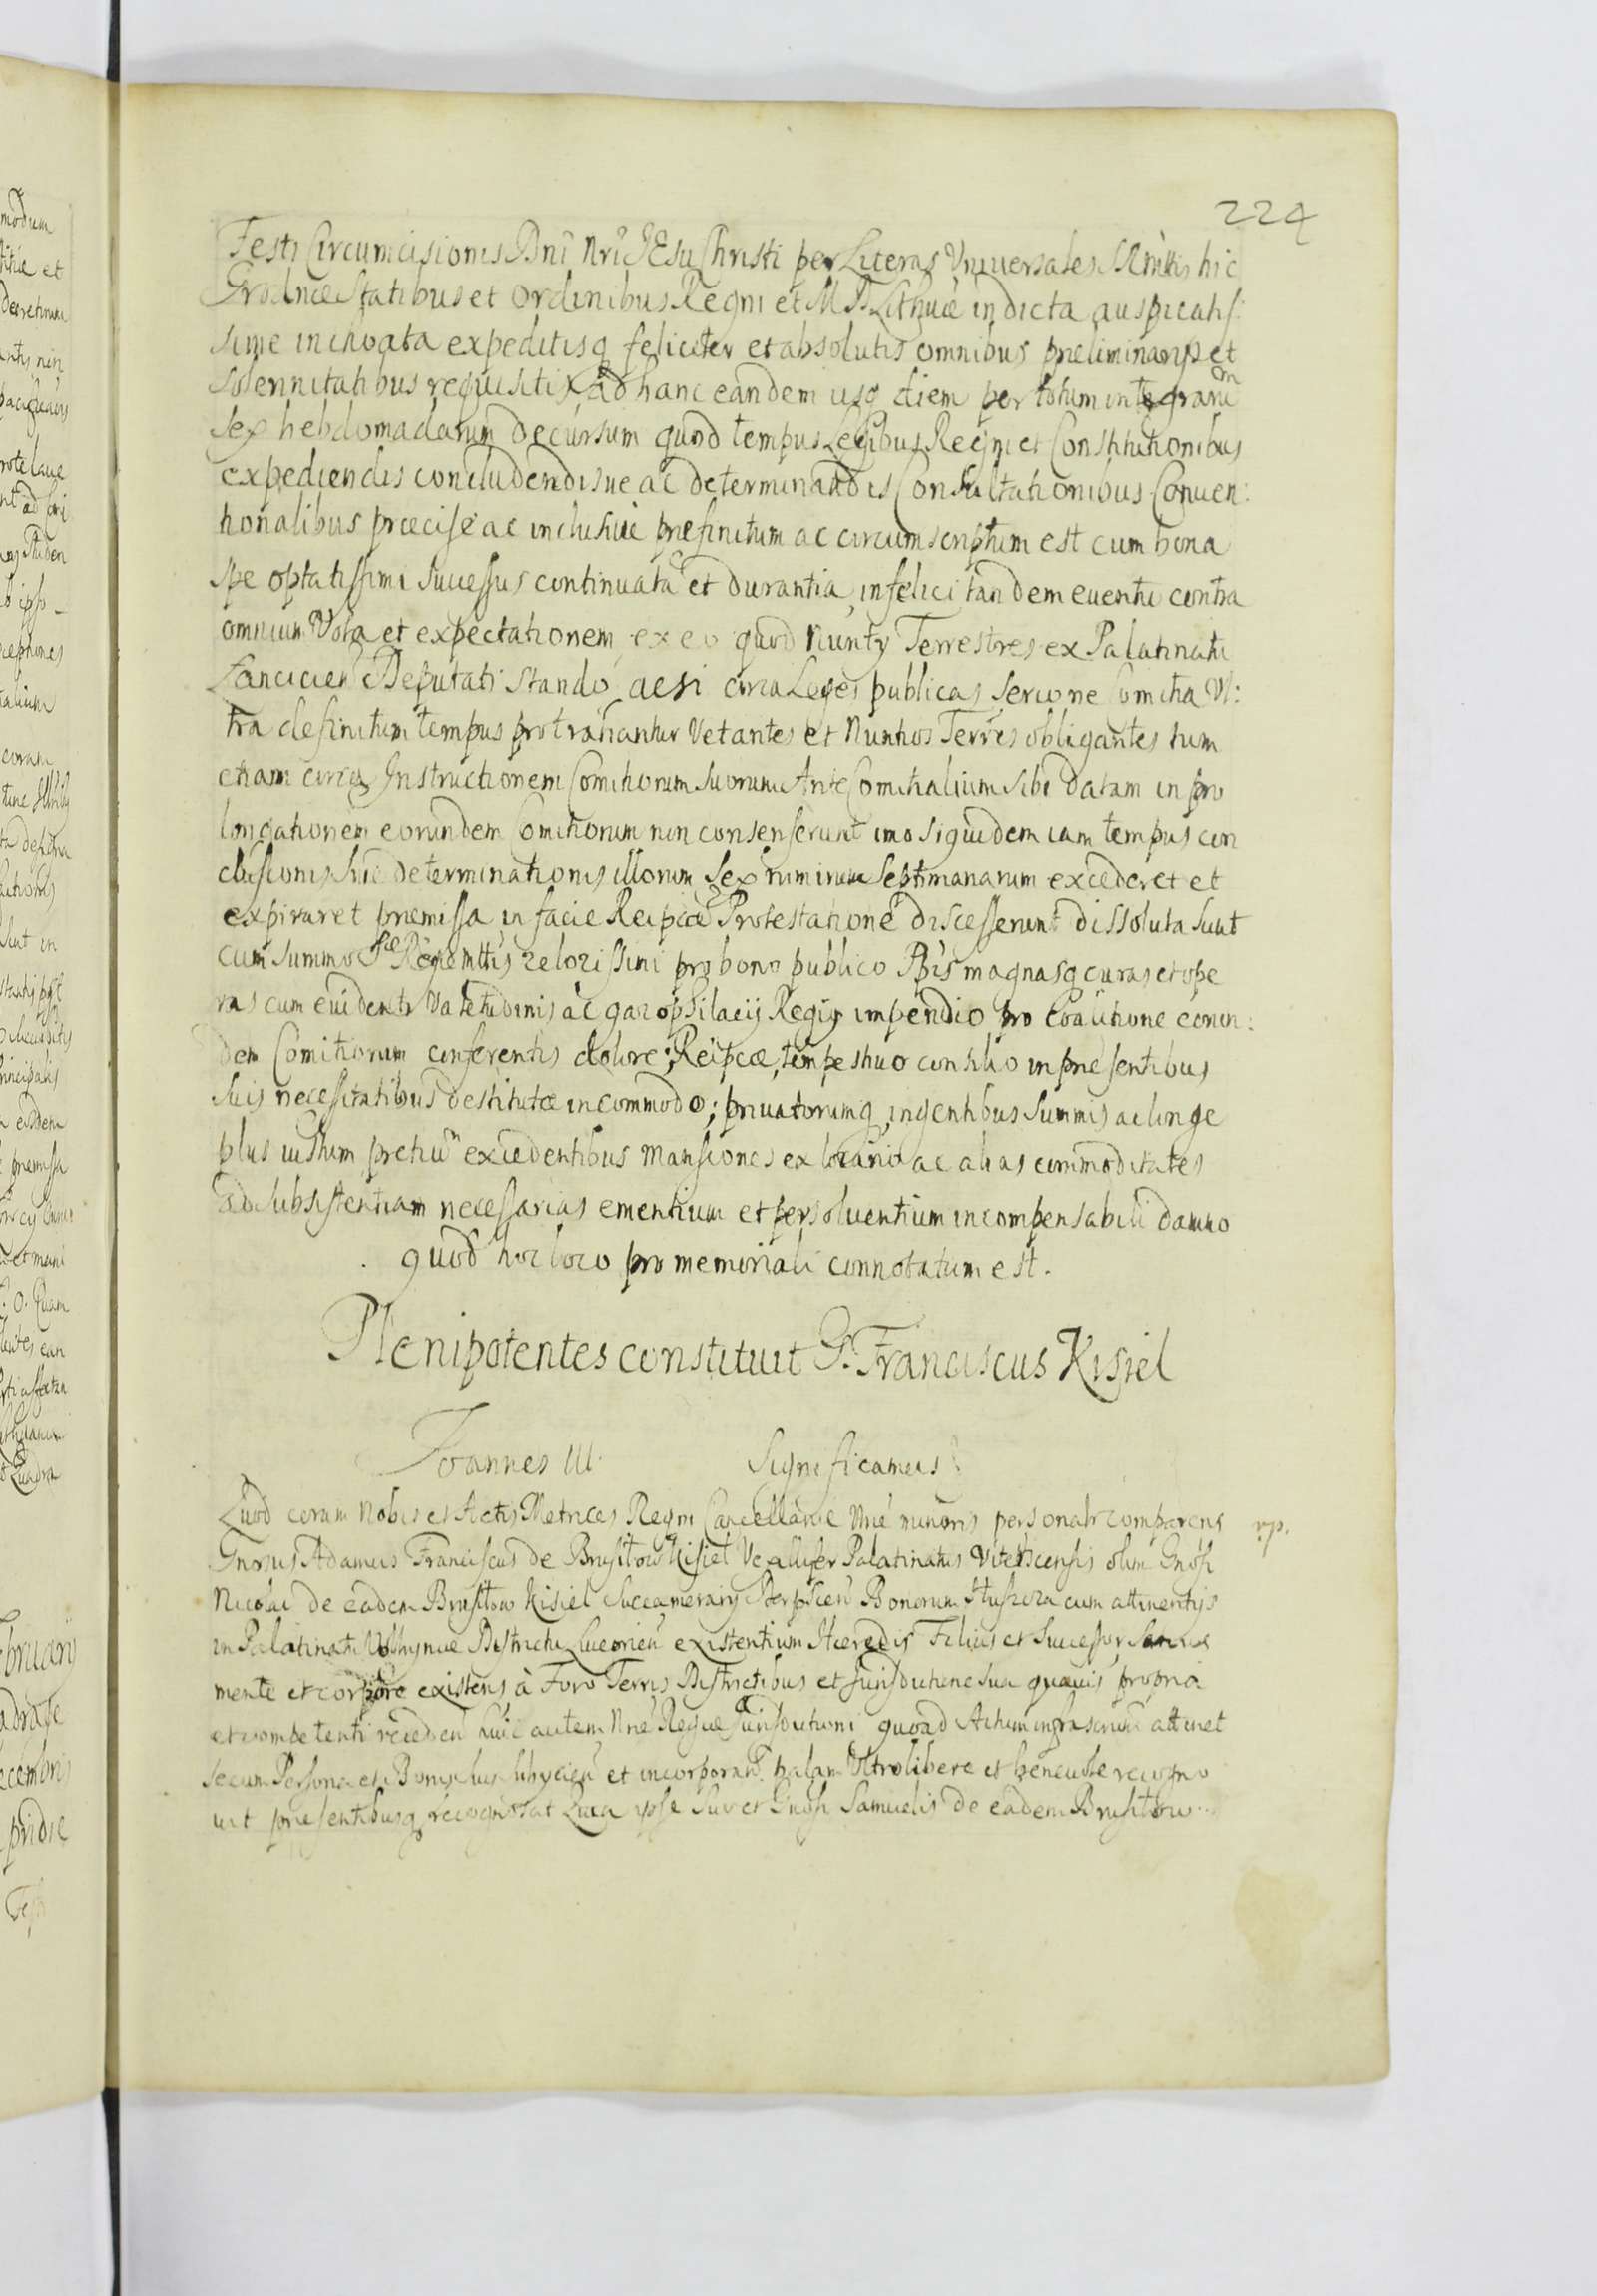 224
Festi Circumcisionis Dni Nri JEsu Christi per Literas Universales hic
Grodnæ Statibus et Ordinibus Regni et M D Lithuæ indicta auspicatis:
sime inchoata expeditisq feliciter et absolutis omnibus præliminarys et
solennitatibus requisitis ad hanc eandem usq diem per totum integrarum
Sex hebdomadarum decursum quod tempus Legibus Regni et Constitutionibus
expediendis concludendisue ac determinandis Consultationibus Conuen:
tionalibus præcise ac inclusiue præfinitum ac circumscriptum est cum bona
spe optatissimi Successus continuata et durantia, infelici tandem euentu contra
omnium Vota et expectationem ex eo quod Nunty Terrestres ex Palatinatu
Lancicien Deputati stando circa Leges publicas serio ne Comitia Vl:
tra definitum tempus protrahantur Vetantes et Nuntios Terres obligantes tum
etiam circa Instructionem Comitiorum suorum Ante Comitialium sibi datam in pro
longationem eorundem Comitiorum non consenserunt imo siquidem iam tempus con
clusionis siue determinationis illorum Sex nimirum Septimanarum excederet et
expiraret præmissa in facie Reipcæ Protestatione discesserunt dissoluta sunt
cum summo Sæ Rgæ Mttis zelozissimi pro bono publico Pris magnasq curas et ope
ras cum euidenti Valetudinis ac gazophilacij Regij impendio pro coalitione eorun:
dem Comitiorum conferentis dolore; Reipcæ, tempestiuo consilio in præsentibus
suis necessitatibus destitutæ incommodo; priuatorumq, ingentibus summis ac longe
plus iustum pretiu excedentibus Mansiones ex locario ac alias commoditates
ad subsistentiam necessarias ementium et persoluentium incompensabili damno
quod hoc loco pro memoriali connotatum est.
Plenipotentes constituit G. Franciscus Kisiel
Joannes III. Significamus
Quod coram Nobis et Actis Metrices Regni Cancellariæ Nræ minoris personalr comparens
Gnrsus Adamus Franciscus de Brusilow Kisiel Vexillifer Palatinatus Vitebscensis olim Gnosi
Nicolai de eadem Brusilow Kisiel Succamerarij Bonorum cum attinentijs
in Palatinatu Volhyniæ Districtu Luceorien existentium Hæredis Filius et Successor Sanus
mente et corpore existens à Foro Terris Districtibus et Jurisdictione sua quauis propria
et competenti receden huic autem Nræ Regiæ Jurisdictioni quoad Actum infrascriptum attinet
se cum Persona et Bonis suis subijcien et incorporan palam Vltro libere et beneuole recogno
uit præsentibusq recognoscat Quia ipse suo et Gnosi Samuelis de eadem Brusilow